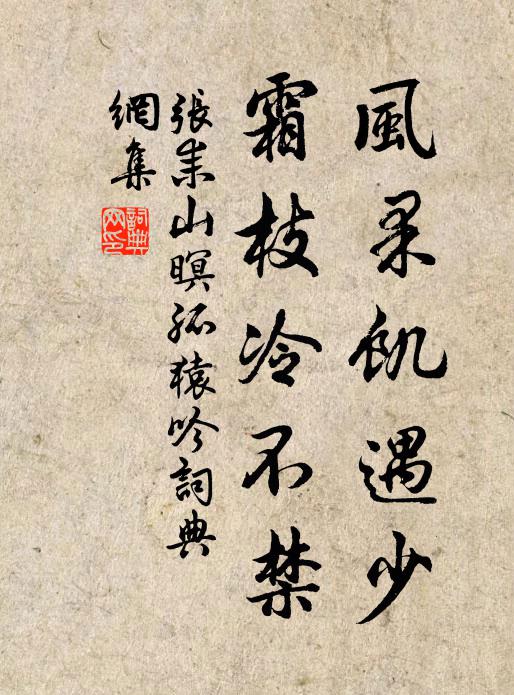 風果飢遇少
霜枝冷不禁
張耒山暝孤猿吟詞典
網集
詞典
网印